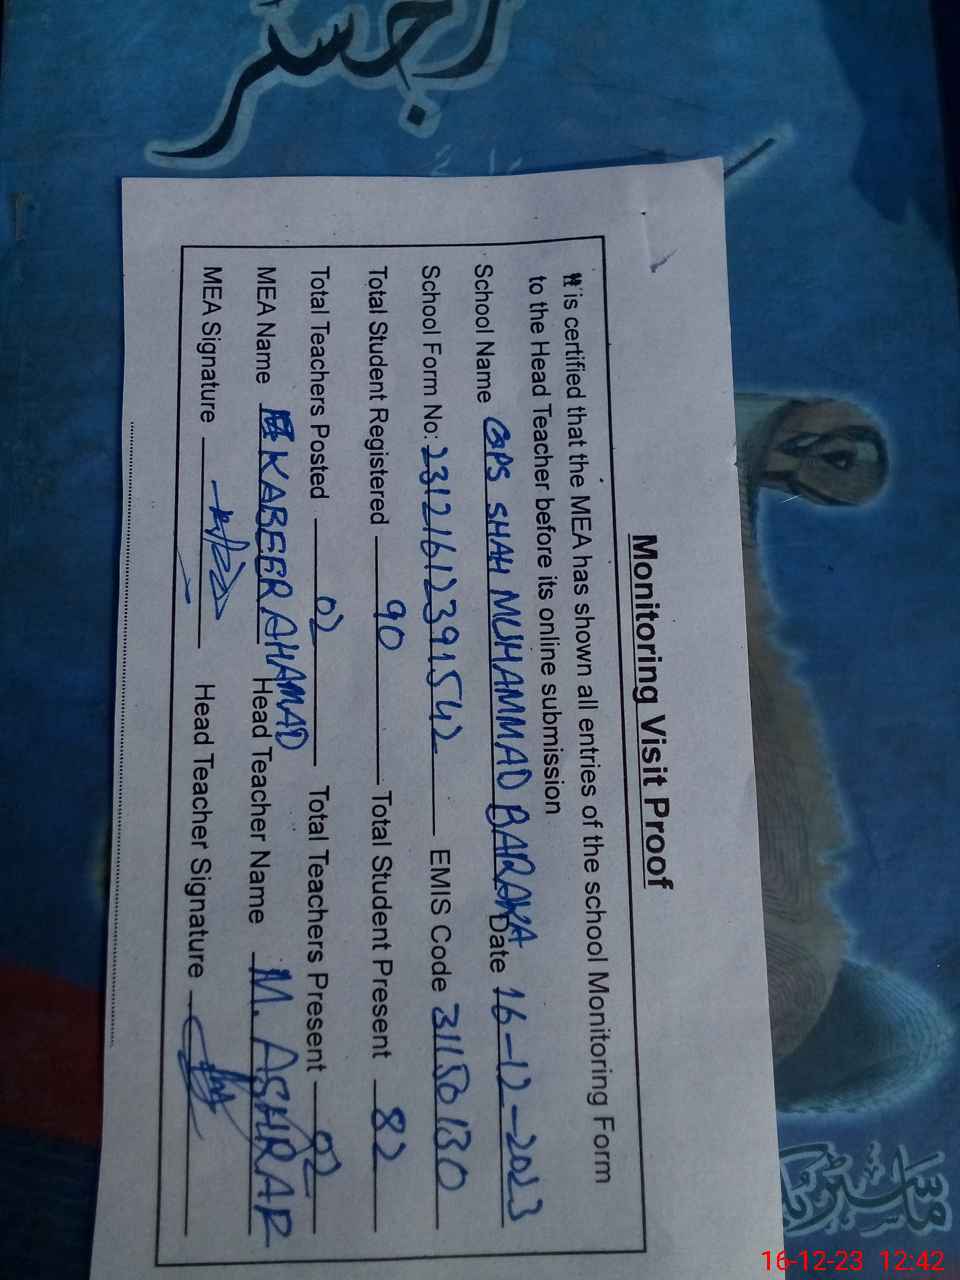 Monitoring Visit Proof
It is certified that the MEA has shown all entries of the school Monitoring Form
to the Head Teacher before its online submission
School Name GPS SHAH MUHAMMAD BARAKA Date 16-12-2023
School Form No: 23121612391542 EMIS Code 31150130
Total Student Registered 90 Total Student Present 82
Total Teachers Posted 02 Total Teachers Present 02
MEA Name KABEER AHAMAD Head Teacher Name M. ASHRAF
MEA Signature Head Teacher Signature
16-12-23 12:42